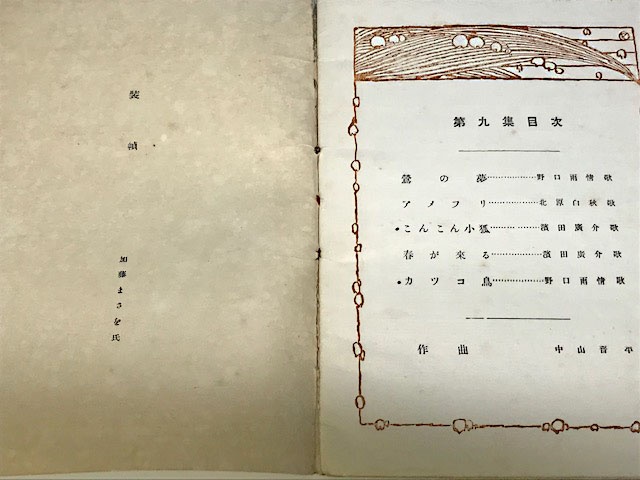 装幀
加藤まさを氏
第九集目次
鶯の夢………野口雨情歌
アメフリ………北原白秋歌
•こんこん小狐………濱田廣介歌
春が來る………濱田廣介歌
•カツコ鳥………野口雨情歌
作曲 中山晋平